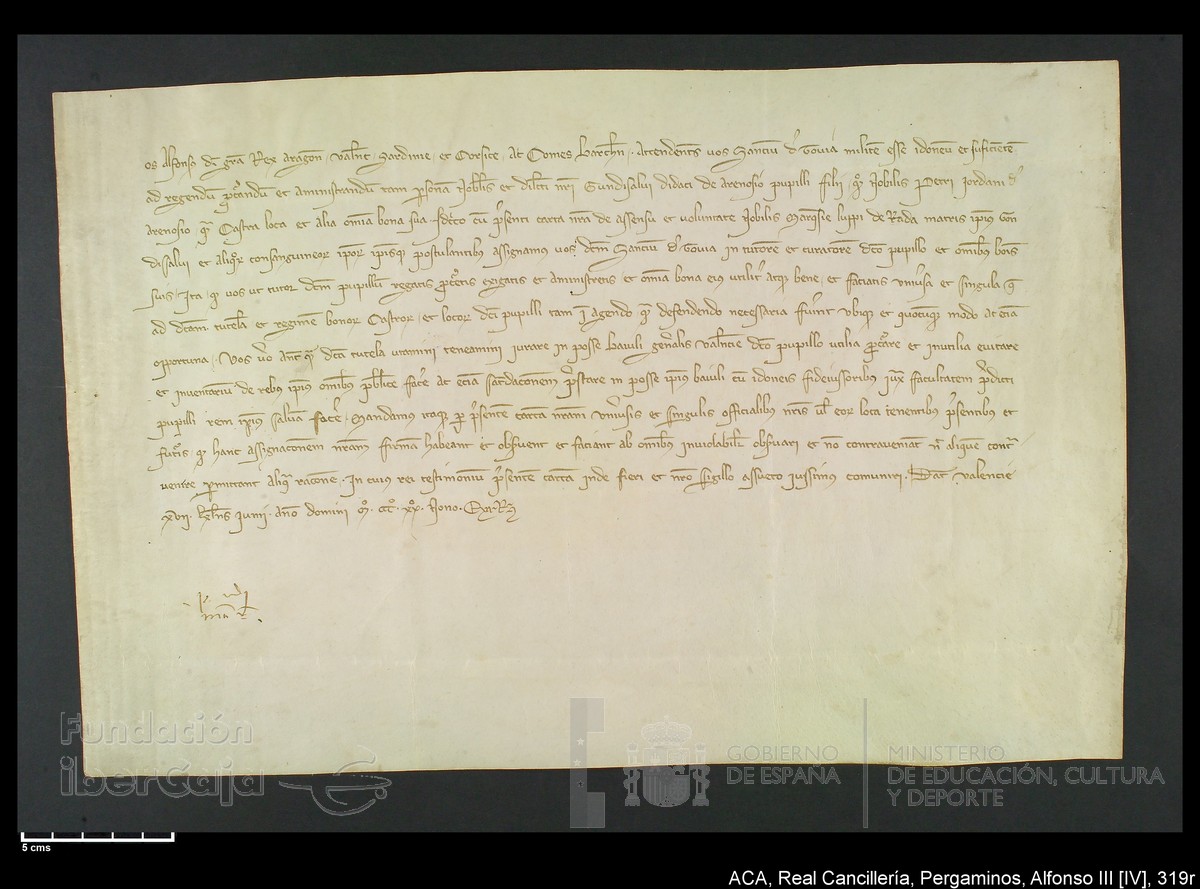 os Alfonsus dei gra Rex Aragon Valent Sardinie et Corsice Ac Comes Barchn. Attendentes vos Sanctiu militem esse idoneu et sufficiete
ad regendu et aministrandu tam Nobilis et dilecti nri Gundisalvi Didaci de Arenosio pupilli filij Nobilis Petri Iordani d
Arenosio Castra loca et alia omia bona sua cu psenti carta nra de assensu et voluntate Nobilis Marquesie luppi de Rada matris ipius Gon
disalvi et consanguineor ipor postulantibus assignamus vos dcm Sanctiu in tutore et curatore dco pupillo et omibus bonis
suis Ita vos ut tutor dcm pupillu regatis et aministretis et omia bona eius utilit atque bene et faciatis et singula q
ad dcam tutela et regime bonor Castror et locor dci pupilli tam agendo qua defendendo necessaria fuerint ubique et modo ac etia
opportuna. Vos vero dca tutela utamini teneamini iurare in posse Baiuli genalis Valencie dco pupillo utilia et inutilia evitare
et inventariu de rebus ipius omibus ac etia prestare in posse ipius baiuli cu idoneis fideiussoribus iuxta facultatem predicti
pupilli rem ipius salva facere. Mandamus itaque per psente carta nram univsis et singulis officialibus nris vel eor loca tenentibus psentibus et
futuris hanc assignacionem nram firma habeant et obsvent et faciant ab omibus inviolabilit obsvari et no contraveniat alique
venire permittant aliqua racone. In cuius rei testimoniu psente carta inde fieri et nro sigillo assueto iussimus comuniri. Dat Valencie
xvii kalens Iunii ano domini Mo CCCo xxo Nono
Fundación
iberCaja
GOBIERNO
DE ESPAÑA
MINISTERIO
DE EDUCACIÓN, CULTURA
Y DEPORTE
5 cms
ACA, Real Cancillería, Pergaminos, Alfonso III [IV], 319r